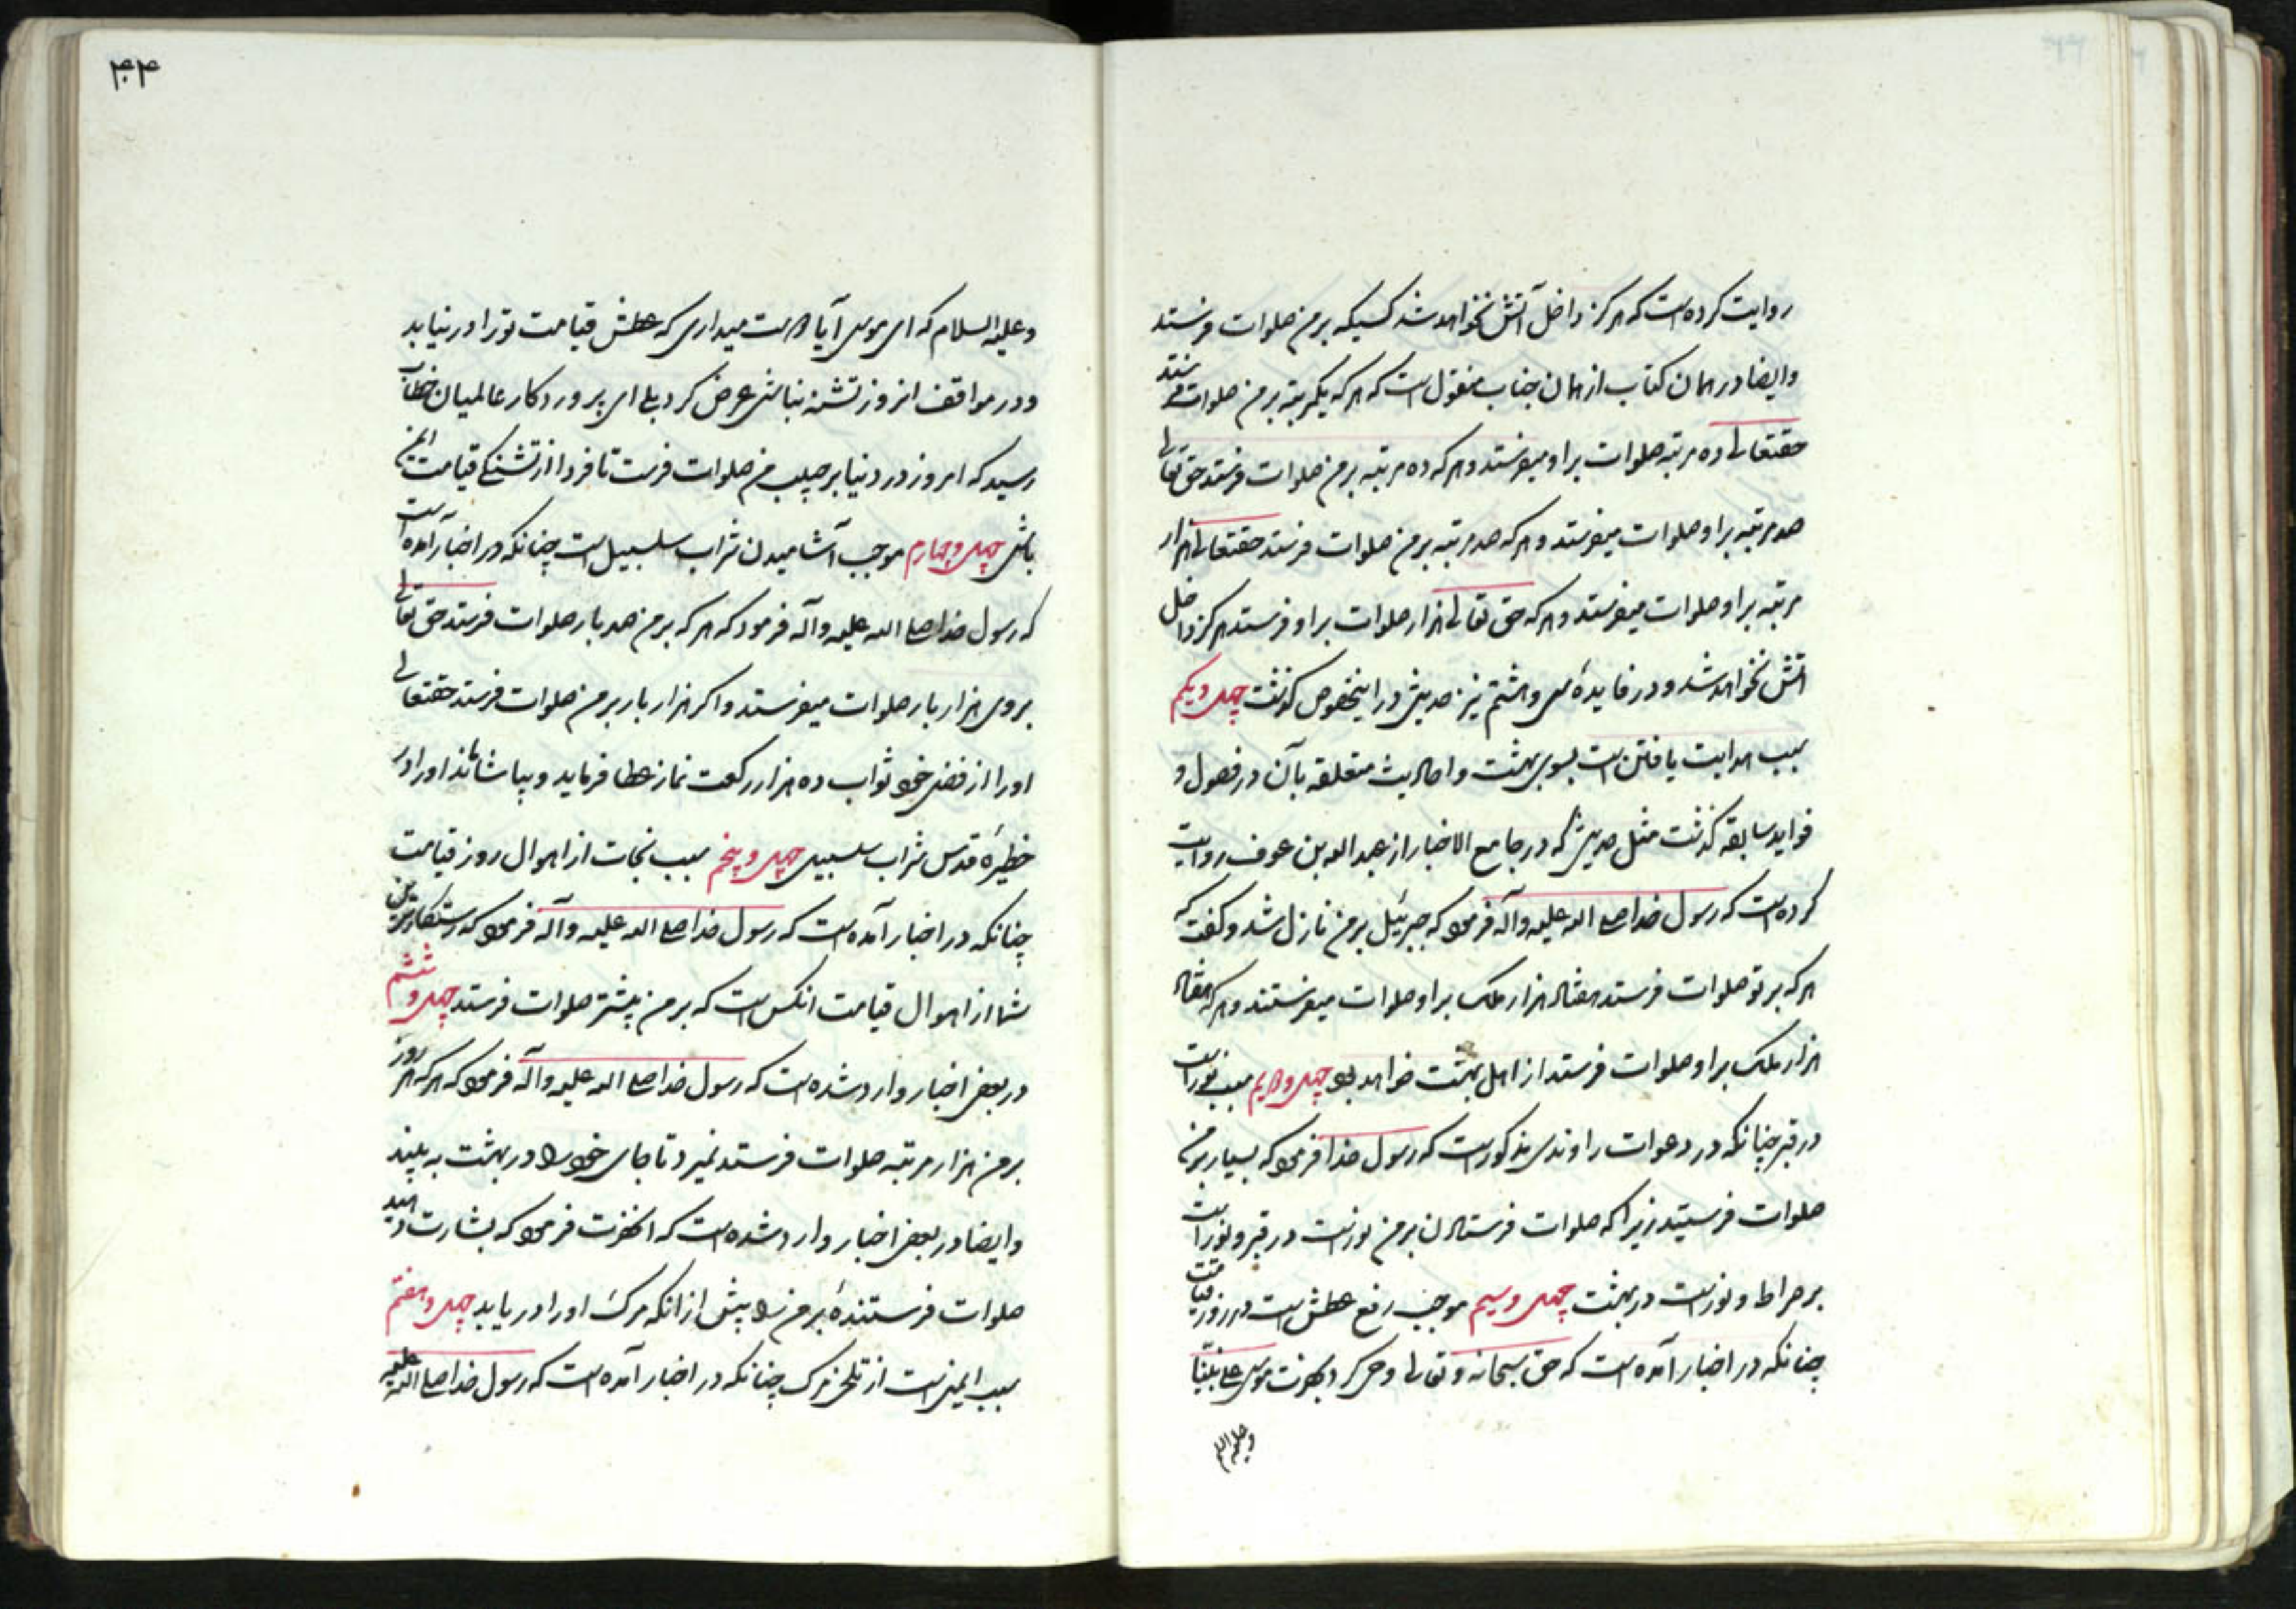 روایت کرده است که هرکز داخل آتش نخواهد شد کسیکه بر من صلوات فرستد
وایضا در همان کتاب از همان جناب منقول است که هر که یکمرتبه بر من صلوات فرستد
حقتعالی ده مرتبه صلوات بر او میفرستد و هر که ده مرتبه بر من صلوات فرستد حق تعالی
صد مرتبه بر او صلوات میفرستد و هر که صد مرتبه بر من صلوات فرستد حقتعالی هزار
مرتبه بر او صلوات میفرستد و هر که حق تعالی هزار صلوات بر او فرستد هرکز داخل
اتش نخواهد شد و در فایدهٔ سی و هشتم نیز حدیثی در اینخصوص کذشت چهل و یکم
سبب هدایت یافتن است بسوی بهشت و احادیث متعلقه بآن در فصول و
فواید سابقه کذشت مثل حدیثی که در جامع الاخبار از عبد الله بن عوف روایت
کرده است که رسول خدا صلی الله علیه و آله فرمود که جبرئیل بر من نازل شد و کفت که
هر که بر تو صلوات فرستد هفتاد هزار ملک بر او صلوات میفرستند و هر که هفتاد
هزار ملک بر او صلوات فرستد از اهل بهشت خواهد بود چهل و دویم سبب نور است
در قبر چنانکه در دعوات راوندی مذکور است که رسول خدا فرمود که بسیار بر من
صلوات فرستید زیرا که صلوات فرستادن بر من نور است در قبر و نور است
بر صراط و نور است در بهشت چهل و سیم موجب رفع عطش است در روز قیامت
چنانکه در اخبار آمده است که حق سبحانه و تعالی وحی کرد بحضرت موسی علی نبینا
و علیه السلام
۴۰۴
و علیه السلام که ای موسی آیا دوست میداری که عطش قیامت تو را در نیابد
و در مواقف انروز تشنه نباشی عرض کرد بلی ای پروردکار عالمیان خطاب
رسید که امروز در دنیا بر حبیب من صلوات فرست تا فردا از تشنکی قیامت ایمن
باشی چهل و چهارم موجب آشامیدن شراب سلسبیل است چنانکه در اخبار آمده است
که رسول خدا صلی الله علیه و آله فرمود که هر که بر من صد بار صلوات فرستد حق تعالی
بروی هزار بار صلوات میفرستد و اکر هزار بار بر من صلوات فرستد حقتعالی
او را از فضل خود ثواب ده هزار رکعت نماز عطا فرماید و بیاشاماند او را در
خطیرهٔ قدس شراب سلسبیل چهل و پنجم سبب نجات از اهوال روز قیامت
چنانکه در اخبار آمده است که رسول خدا صلی الله علیه و آله فرمود که رستکارترین
شما از اهوال قیامت انکس است که بر من بیشتر صلوات فرستد چهل و ششم
در بعضی اخبار وارد شده است که رسول خدا صلی الله علیه و آله فرمود که هر که هر روز
بر من هزار مرتبه صلوات فرستد نمیرد تا جای خود را در بهشت به بیند
وایضا در بعضی اخبار وارد شده است که انحضرت فرمود که بشارت دهید
صلوات فرستندهٔ بر من را پیش از انکه مرک او را در یابد چهل و هفتم
سبب ایمنی است از تلخی مرک چنانکه در اخبار آمده است که رسول خدا صلی الله علیه